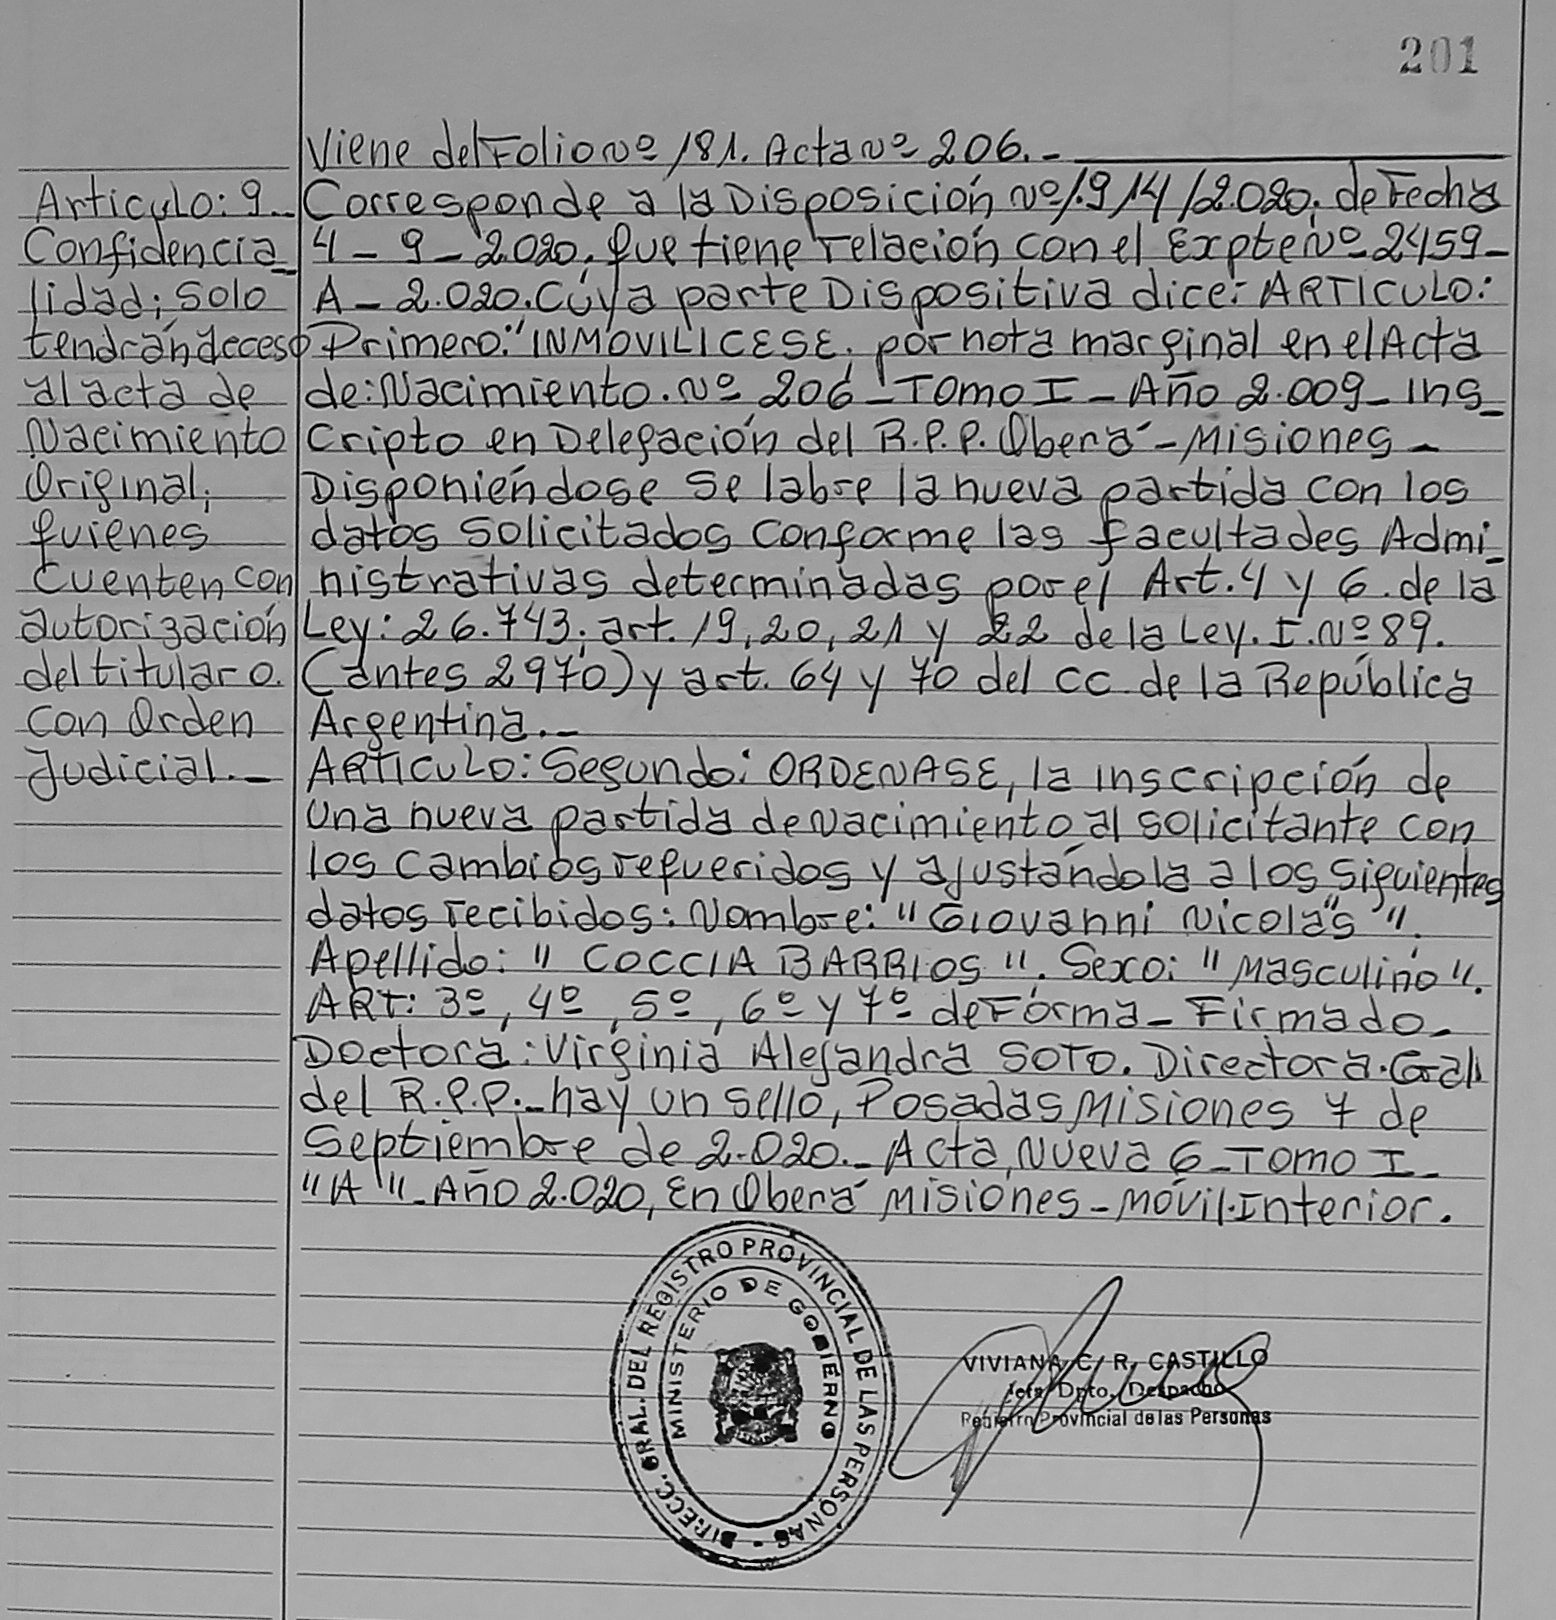 201
Viene del Folio Nº 181. Acta Nº 206.-
Articulo: 9.-
Confidencia_
lidad; solo
tendrán acceso
al acta de
Nacimiento
Original;
quienes
Cuenten con
autorización
del titular o.
Con Orden
Judicial.-
Corresponde a la Disposición Nº 1.914/2.020, de Fecha
4-9-2.020. que tiene relación con el Expte Nº 2459-
A-2.020. Cuya parte Dispositiva dice: ARTICULO:
Primero: "INMOVILICESE, por nota marginal en el Acta
de: Nacimiento. Nº 206-TOMO I-Año 2.009-Ins_
Cripto en Delegación del R.P.P. Oberá-Misiones-
Disponiéndose se labre la nueva partida con los
datos solicitados conforme las facultades Admi_
nistrativas determinadas por el Art. 4 y 6. de la
Ley: 26.743; art. 19, 20, 21 y 22 de la Ley. I. Nº 89.
(antes 2970) y art. 64 y 70 del CC. de la República
Argentina.-
ARTICULO: Segundo: ORDENASE, la inscripción de
una nueva partida de Nacimiento al solicitante con
los cambios requeridos y ajustándola a los siguientes
datos recibidos: Nombre: "Giovanni Nicolás".
Apellido: "COCCIA BARRIOS". Sexo: "Masculino".
ART: 3º, 4º, 5º, 6º y 7º de Forma- Firmado.
Doctora: Virginia Alejandra SOTO. Directora. Gral
del R.P.P.-hay un sello, Posadas Misiones 7 de
Septiembre de 2.020.- Acta, Nueva 6-TOMO I-
"A"-Año 2.020, En Oberá Misiones-Móvil.Interior.
DIRECC. GRAL. DEL REGISTRO PROVINCIAL DE LAS PERSONAS -
MINISTERIO DE GOBIERNO
VIVIANA C. R. CASTILLO
Jefa Dpto. Despacho
Registro Provincial de las Personas